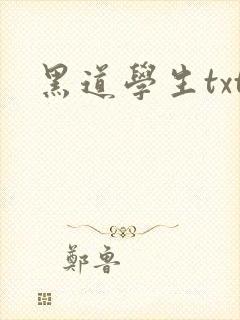 黑道學生txt
鄭魯